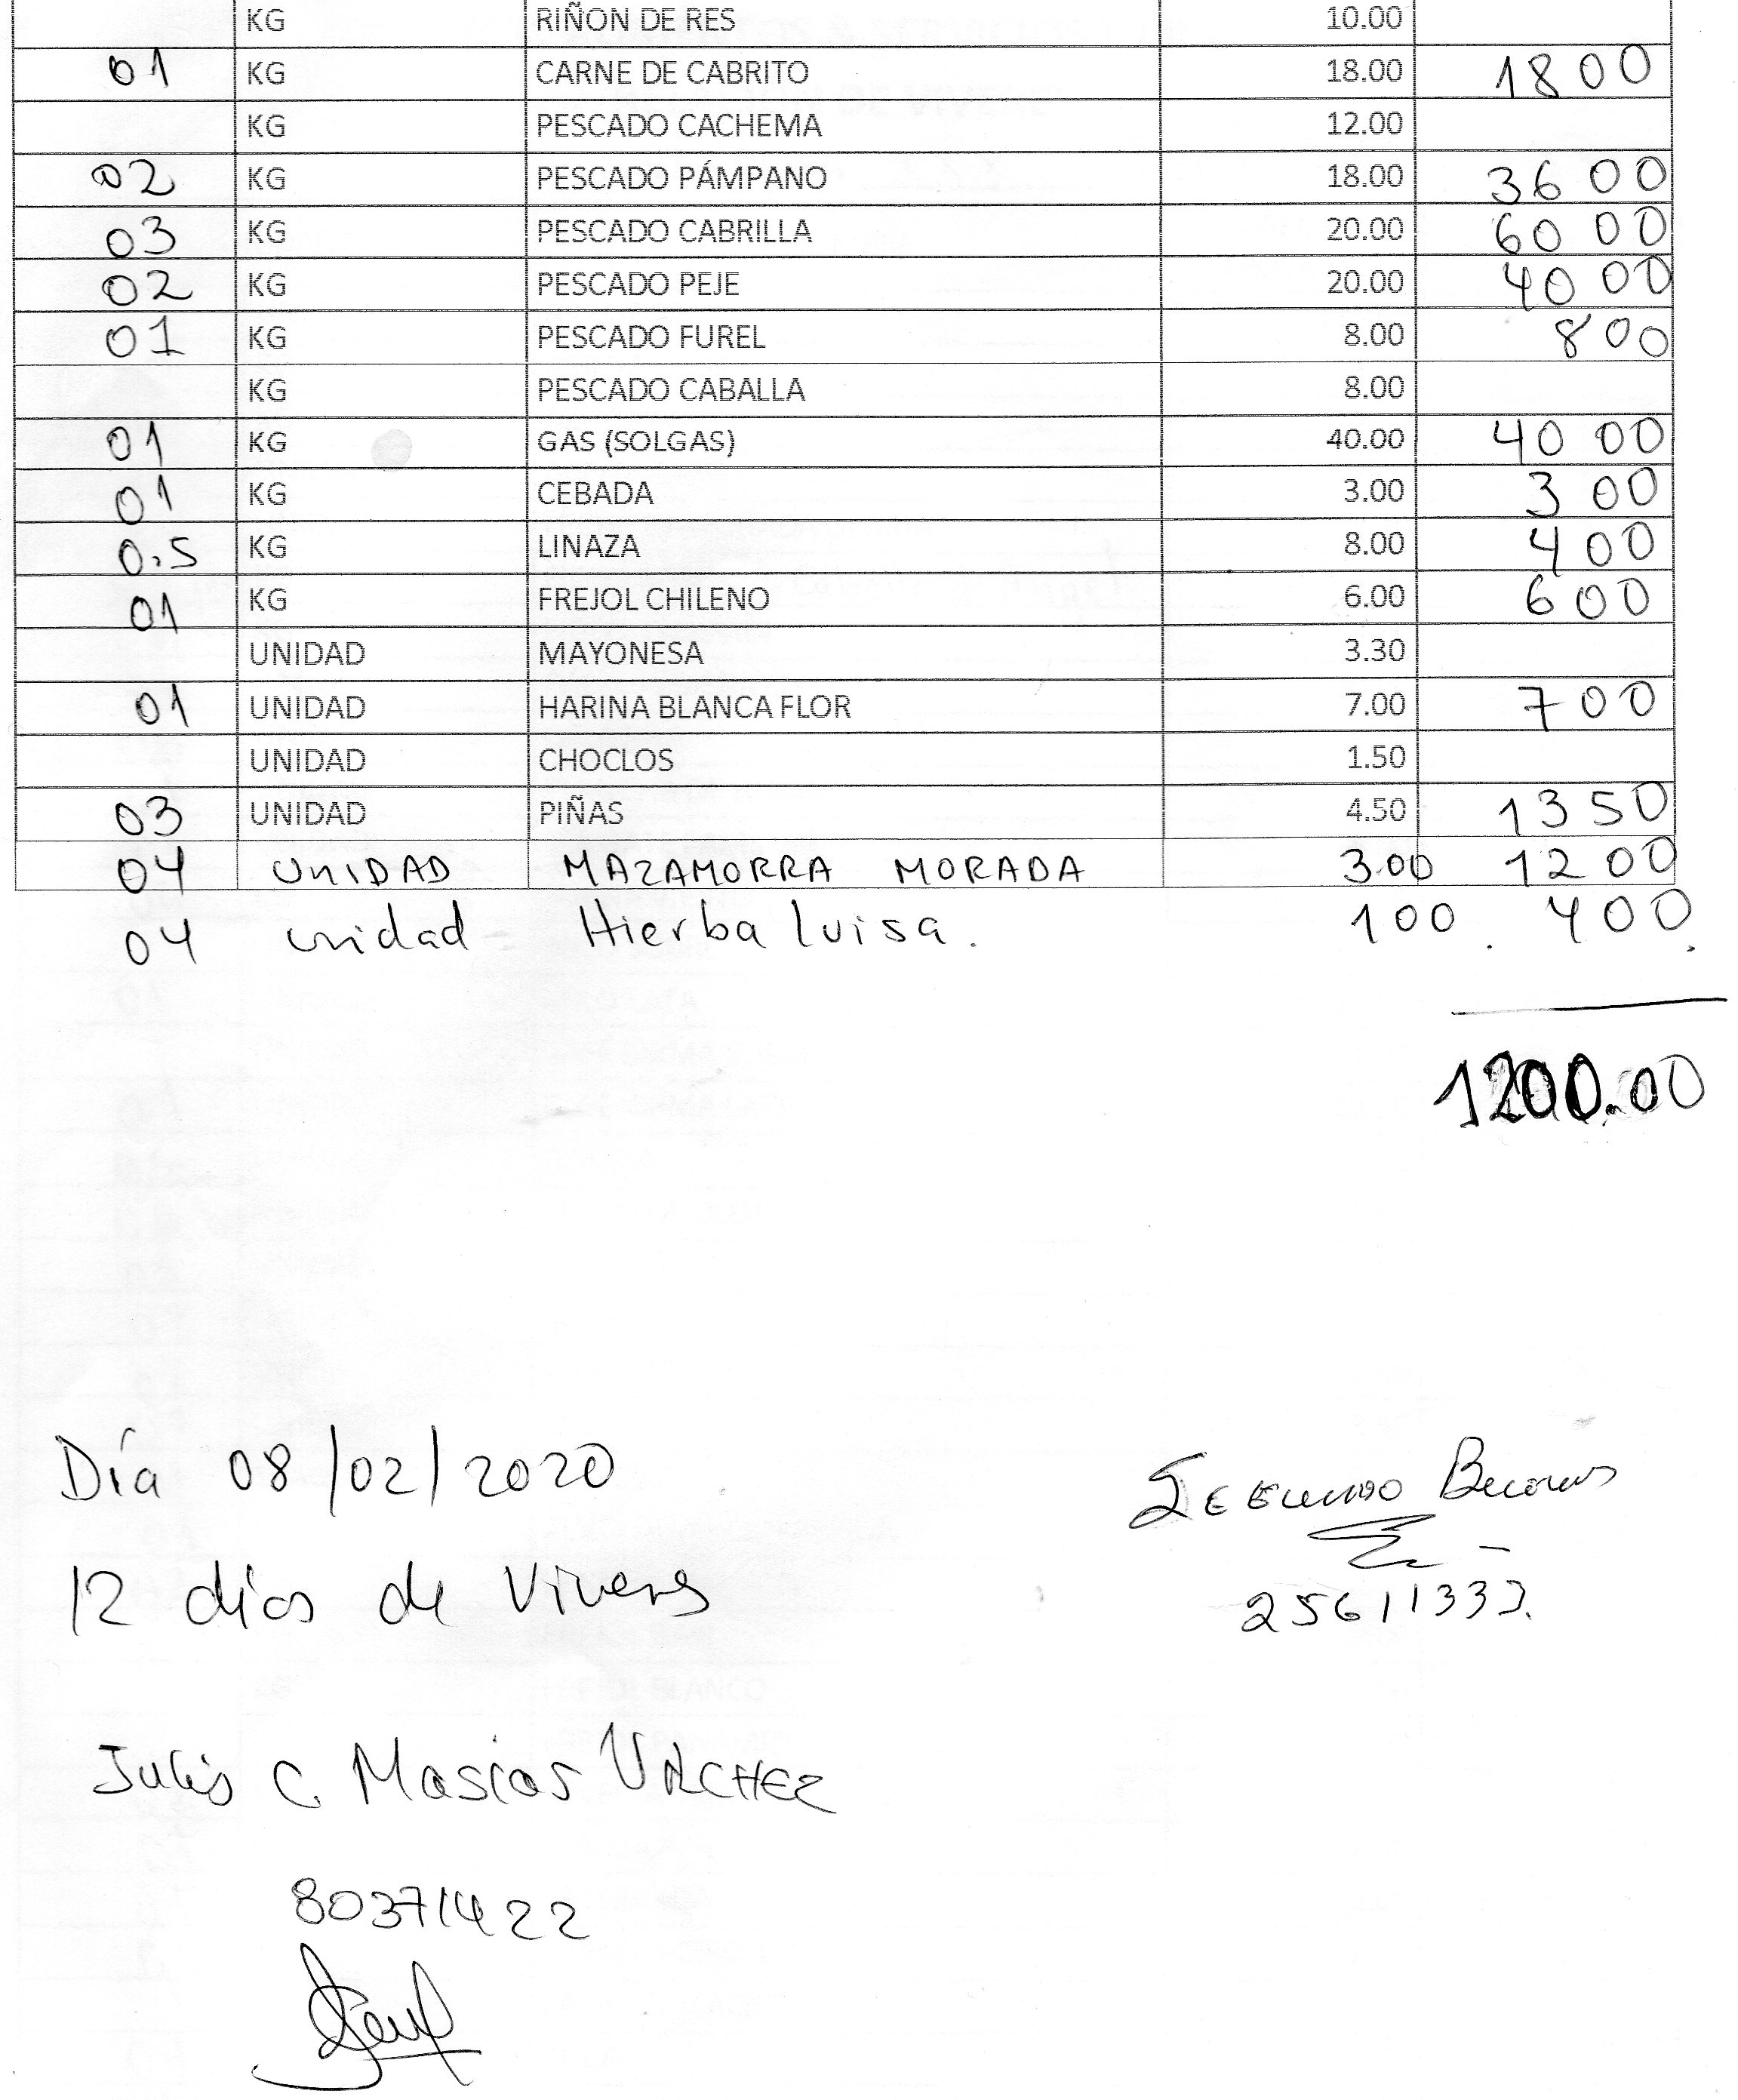 KG RIÑON DE RES 10.00
01 KG CARNE DE CABRITO 18.00 18 00
KG PESCADO CACHEMA 12.00
02 KG PESCADO PÁMPANO 18.00 36 00
03 KG PESCADO CABRILLA 20.00 60 00
02 KG PESCADO PEJE 20.00 40 00
01 KG PESCADO FUREL 8.00 8 00
KG PESCADO CABALLA 8.00
01 KG GAS (SOLGAS) 40.00 40 00
01 KG CEBADA 3.00 3 00
0.5 KG LINAZA 8.00 4 00
01 KG FREJOL CHILENO 6.00 6 00
UNIDAD MAYONESA 3.30
01 UNIDAD HARINA BLANCA FLOR 7.00 7 00
UNIDAD CHOCLOS 1.50
03 UNIDAD PIÑAS 4.50 13 50
04 UNIDAD MAZAMORRA MORADA 3.00 12 00
04 unidad Hierba luisa. 1 00 . 4 00.
1200.00
Día 08/02/2020
Segundo
12 días de Viveres
25611333.
Julio C. Masias VILCHEZ
80371422